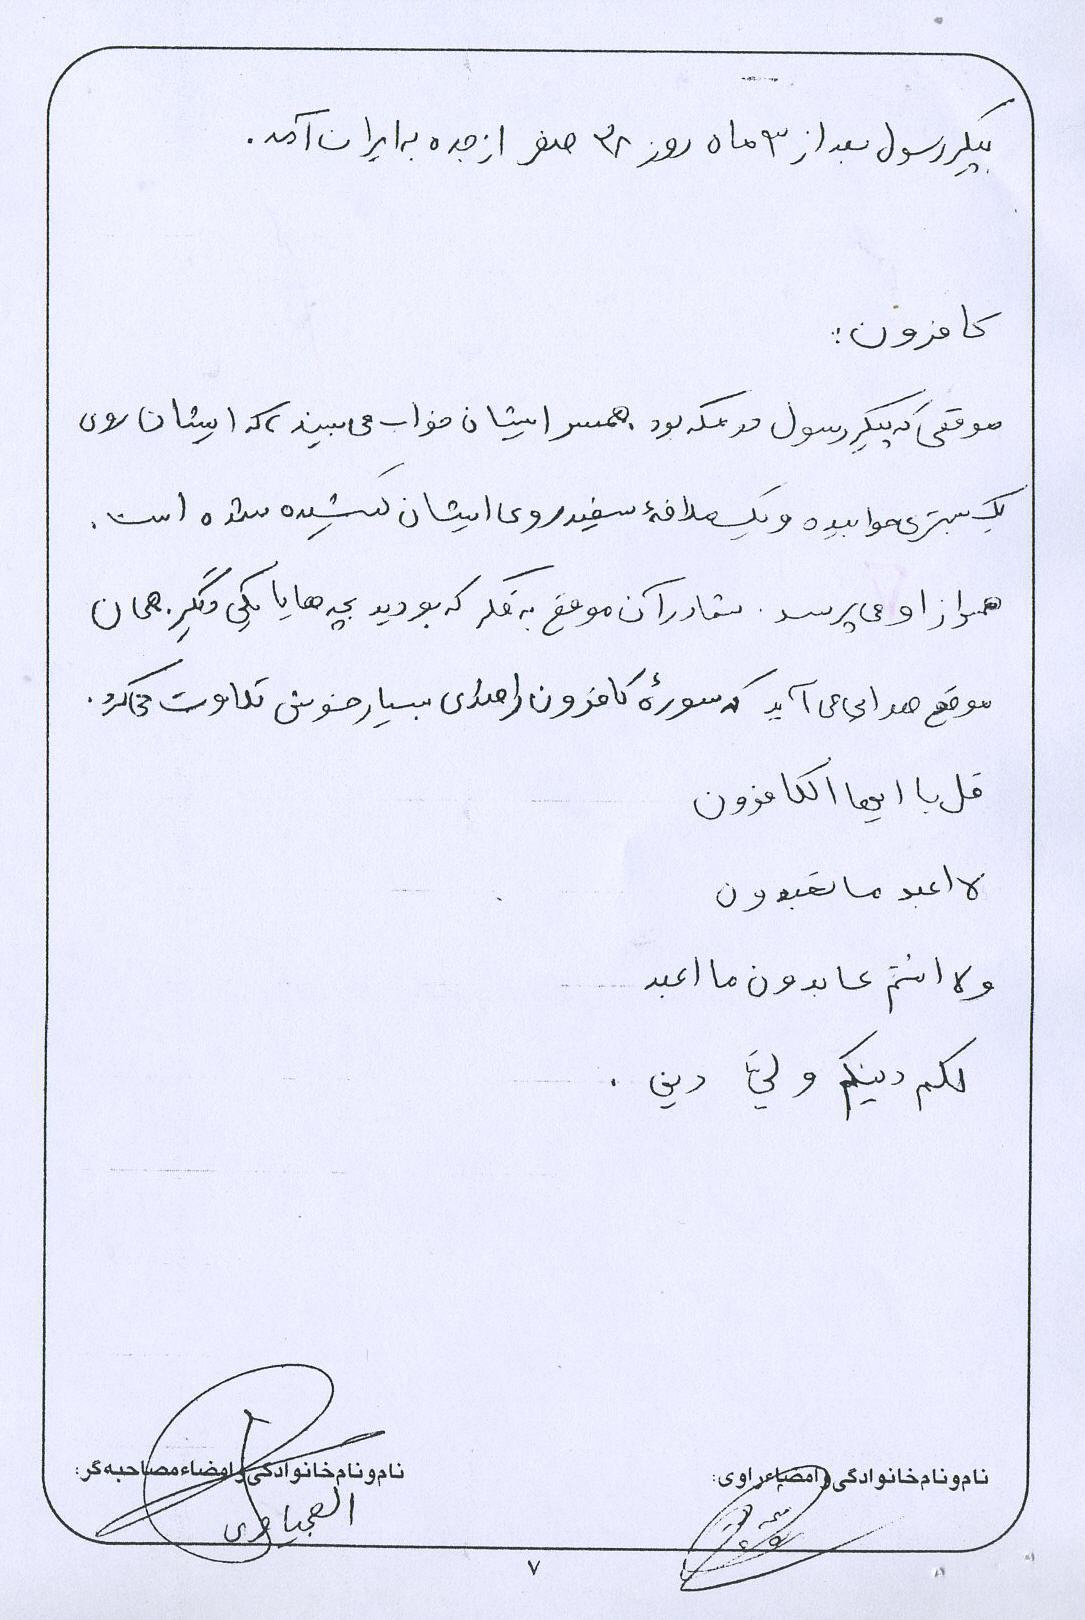 پیکر رسول بعد از ۳ ماه روز ۲۸ صفر از جده به ایران آمد.
کافرون:
موقعی که پیکر رسول در مکه بود. همسر ایشان خواب می بیند، که ایشان روی
یک بستری خوابیده و یک ملافهٔ سفید روی ایشان کشیده شده است.
همسر از او می پرسد. شما در آن موقع به فکر که بودید بچه ها یا یکی دیگر. همان
موقع صدایی می آید که سورهٔ کافرون را صدای بسیار خوش تلاوت می کرد.
قل یا ایها الکافرون
لا اعبد ما تعبدون
ولا انتم عابدون ما اعبد
لکم دینکم و لی دین.
نام و نام خانوادگی و امضاء راوی:
نام و نام خانوادگی و امضاء مصاحبه گر:
۷